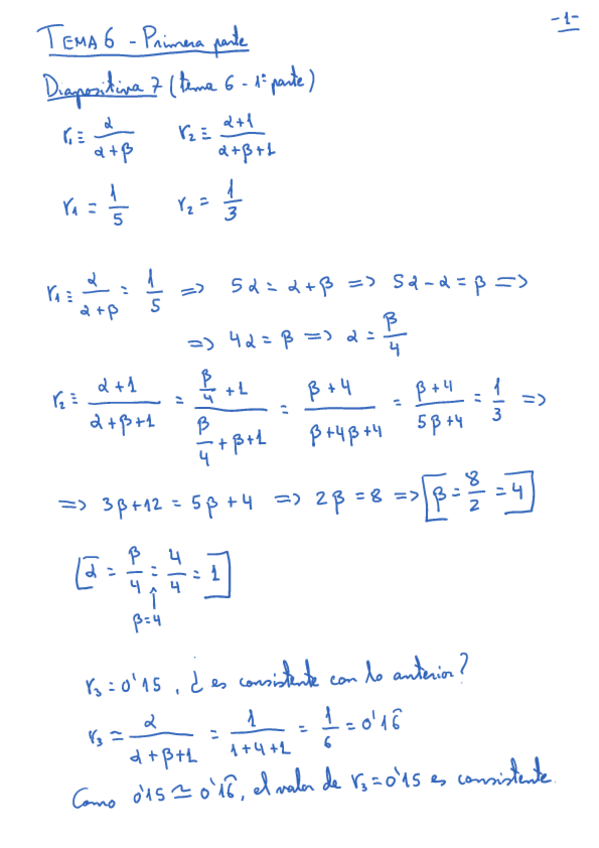 -1-
TEMA 6 - Primera parte
Diapositiva 7 (tema 6 - 1ª parte)
r₁ ≡ α/(α+β)   r₂ ≡ (α+1)/(α+β+1)
r₁ = 1/5   r₂ = 1/3
r₁ ≡ α/(α+β) = 1/5 => 5α = α+β => 5α-α = β =>
=> 4α = β => α = β/4
r₂ ≡ (α+1)/(α+β+1) = (β/4 +1)/(β/4 +β+1) = (β+4)/(β+4β+4) = (β+4)/(5β+4) = 1/3 =>
=> 3β+12 = 5β+4 => 2β = 8 => [β = 8/2 = 4]
[α = β/4 = 4/4 = 1]
↑
β=4
r₃ = 0'15, ¿es consistente con lo anterior?
r₃ ≃ α/(α+β+1) = 1/(1+4+1) = 1/6 = 0'16̂
Como 0'15 ≃ 0'16̂, el valor de r₃=0'15 es consistente.